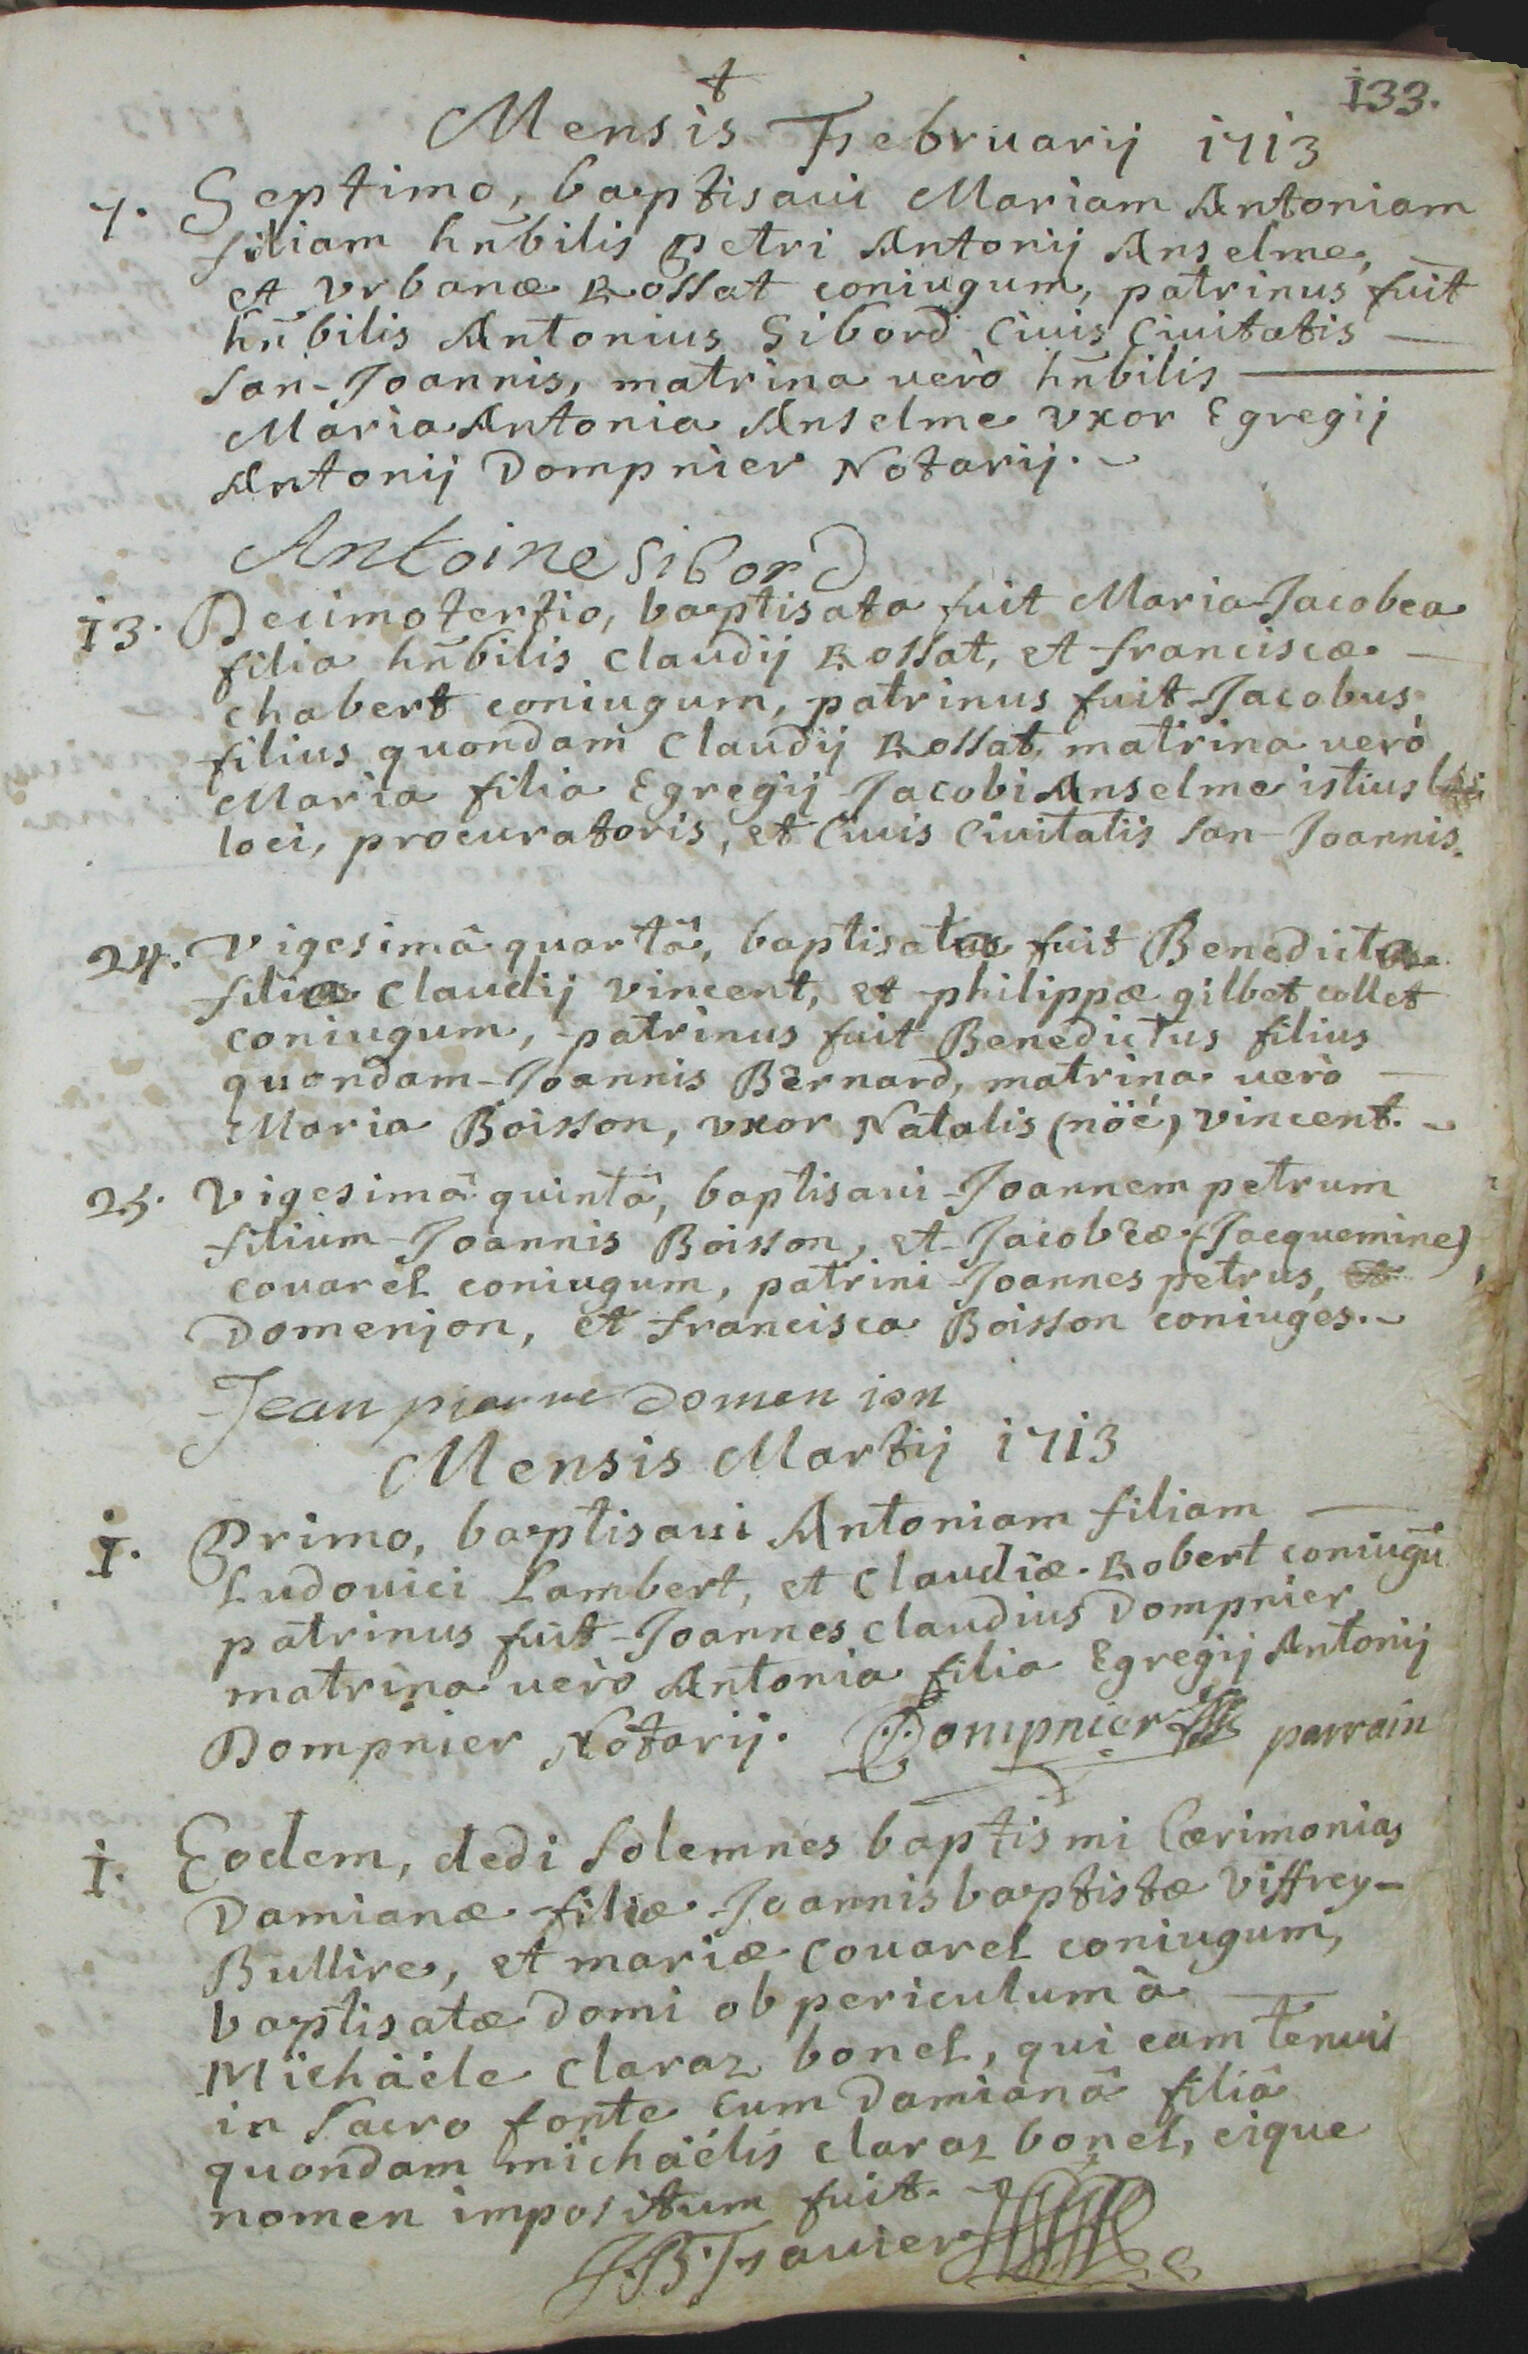 133.
Mensis Februarij 1713
7. Septimo, baptisaui Mariam Antoniam
filiam hñbilis petri Antonij Anselme,
et vrbanæ Rossat coniugum, patrinus fuit
hñbilis Antonius Sibord Ciuis Ciuitatis
San-Joannis, matrina uerò hñbilis
Maria Antonia Anselme vxor Egregij
Antonij Dompnier Notarij.
Antoine Sibord
13. Decimotertio, baptisata fuit Maria-Jacobea
filia hñbilis Claudij Rossat, et franciscæ
chabert coniugum, patrinus fuit Jacobus
filius quondam Claudij Rossat, matrina uerò
Maria filia Egregij Jacobi Anselme istius
loci, procuratoris, et Ciuis Ciuitatis San-Joannis.
24. Vigesimâ quartâ, baptisata fuit Benedicta
filia Claudij vincent, et philippæ gilbet collet
coniugum, patrinus fuit Benedictus filius
quondam Joannis Bernard, matrina uerò
Maria Boisson, vxor Natalis (nöé) vincent.
25. Vigesimâ quintâ, baptisaui Joannem petrum
filium Joannis Boisson, et Jacobeæ (Jacquemine)
couarel coniugum, patrini Joannes petrus,
Domenjon, et francisca Boisson coniuges.
Jean pierre domen ion
Mensis Martij 1713
1. Primo, baptisaui Antoniam filiam
Ludouici Lambert, et Claudiæ Robert coniugū
patrinus fuit Joannes Claudius Dompnier
matrina uerò Antonia filia Egregij Antonij
Dompnier Notarij. Dompnier parrain
1. Eodem, dedi Solemnes baptismi Cærimonias
Damianæ filiæ Joannis baptistæ Viffrey-
Bullire, et mariæ couarel coniugum,
baptisatæ domi ob periculum à
Michäele claraz bonel, qui eam tenuit
in Sacro fonte cum Damianâ filiâ
quondam michäélis claraz bonel, eique
nomen impositum fuit.